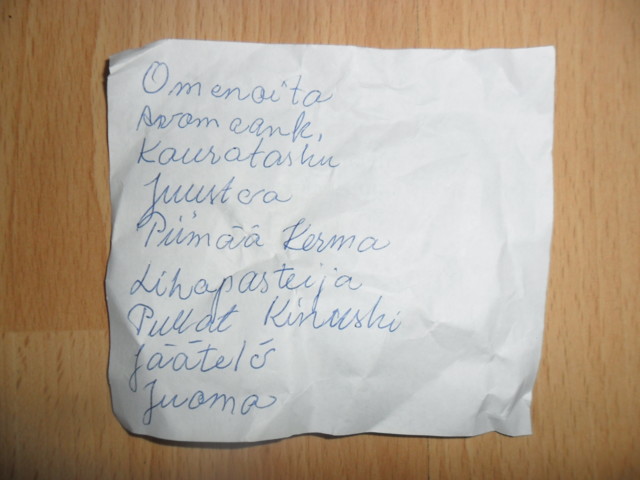 Omenoita
Avomaank.
Kaura
Juustoa
Piimää Kerma
Lihapasteija
Pullat Kinuski
Jäätelö
Juoma